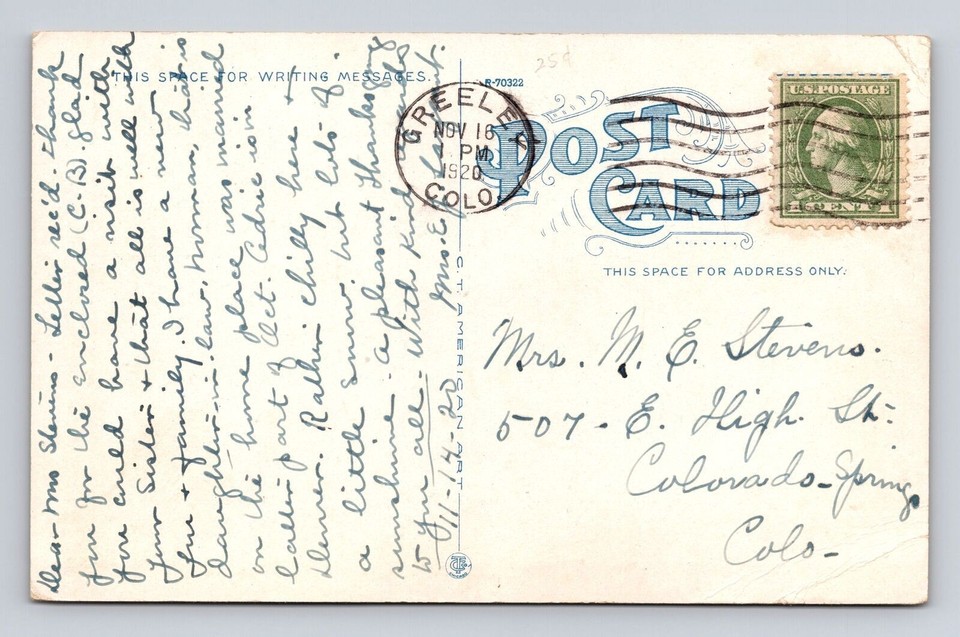 THIS SPACE FOR WRITING MESSAGES.
R-70322
25¢
GREELEY
NOV 16
1 PM
1920
COLO.
POST
CARD
U.S. POSTAGE
1 CENT 1
THIS SPACE FOR ADDRESS ONLY.
C. T. AMERICAN ART
Mrs. M. E. Stevens.
507. E. High St.
Colorado-Springs
Colo-
Dear Mrs Stevens- Letter rec'd- thank
you for the enclosed (C-B). glad
you could have a visit with
your Sister + that all is well with
you + family. I have a new
daughter-in-law, Norman, that is
on the home place was married
latter part of Oct. Cedric is in
Denver. Rather chilly here +
a little snow, but lots of
sunshine- a pleasant Thanksgiving
to you all- With kind regards
11-14-20 Mrs. E.